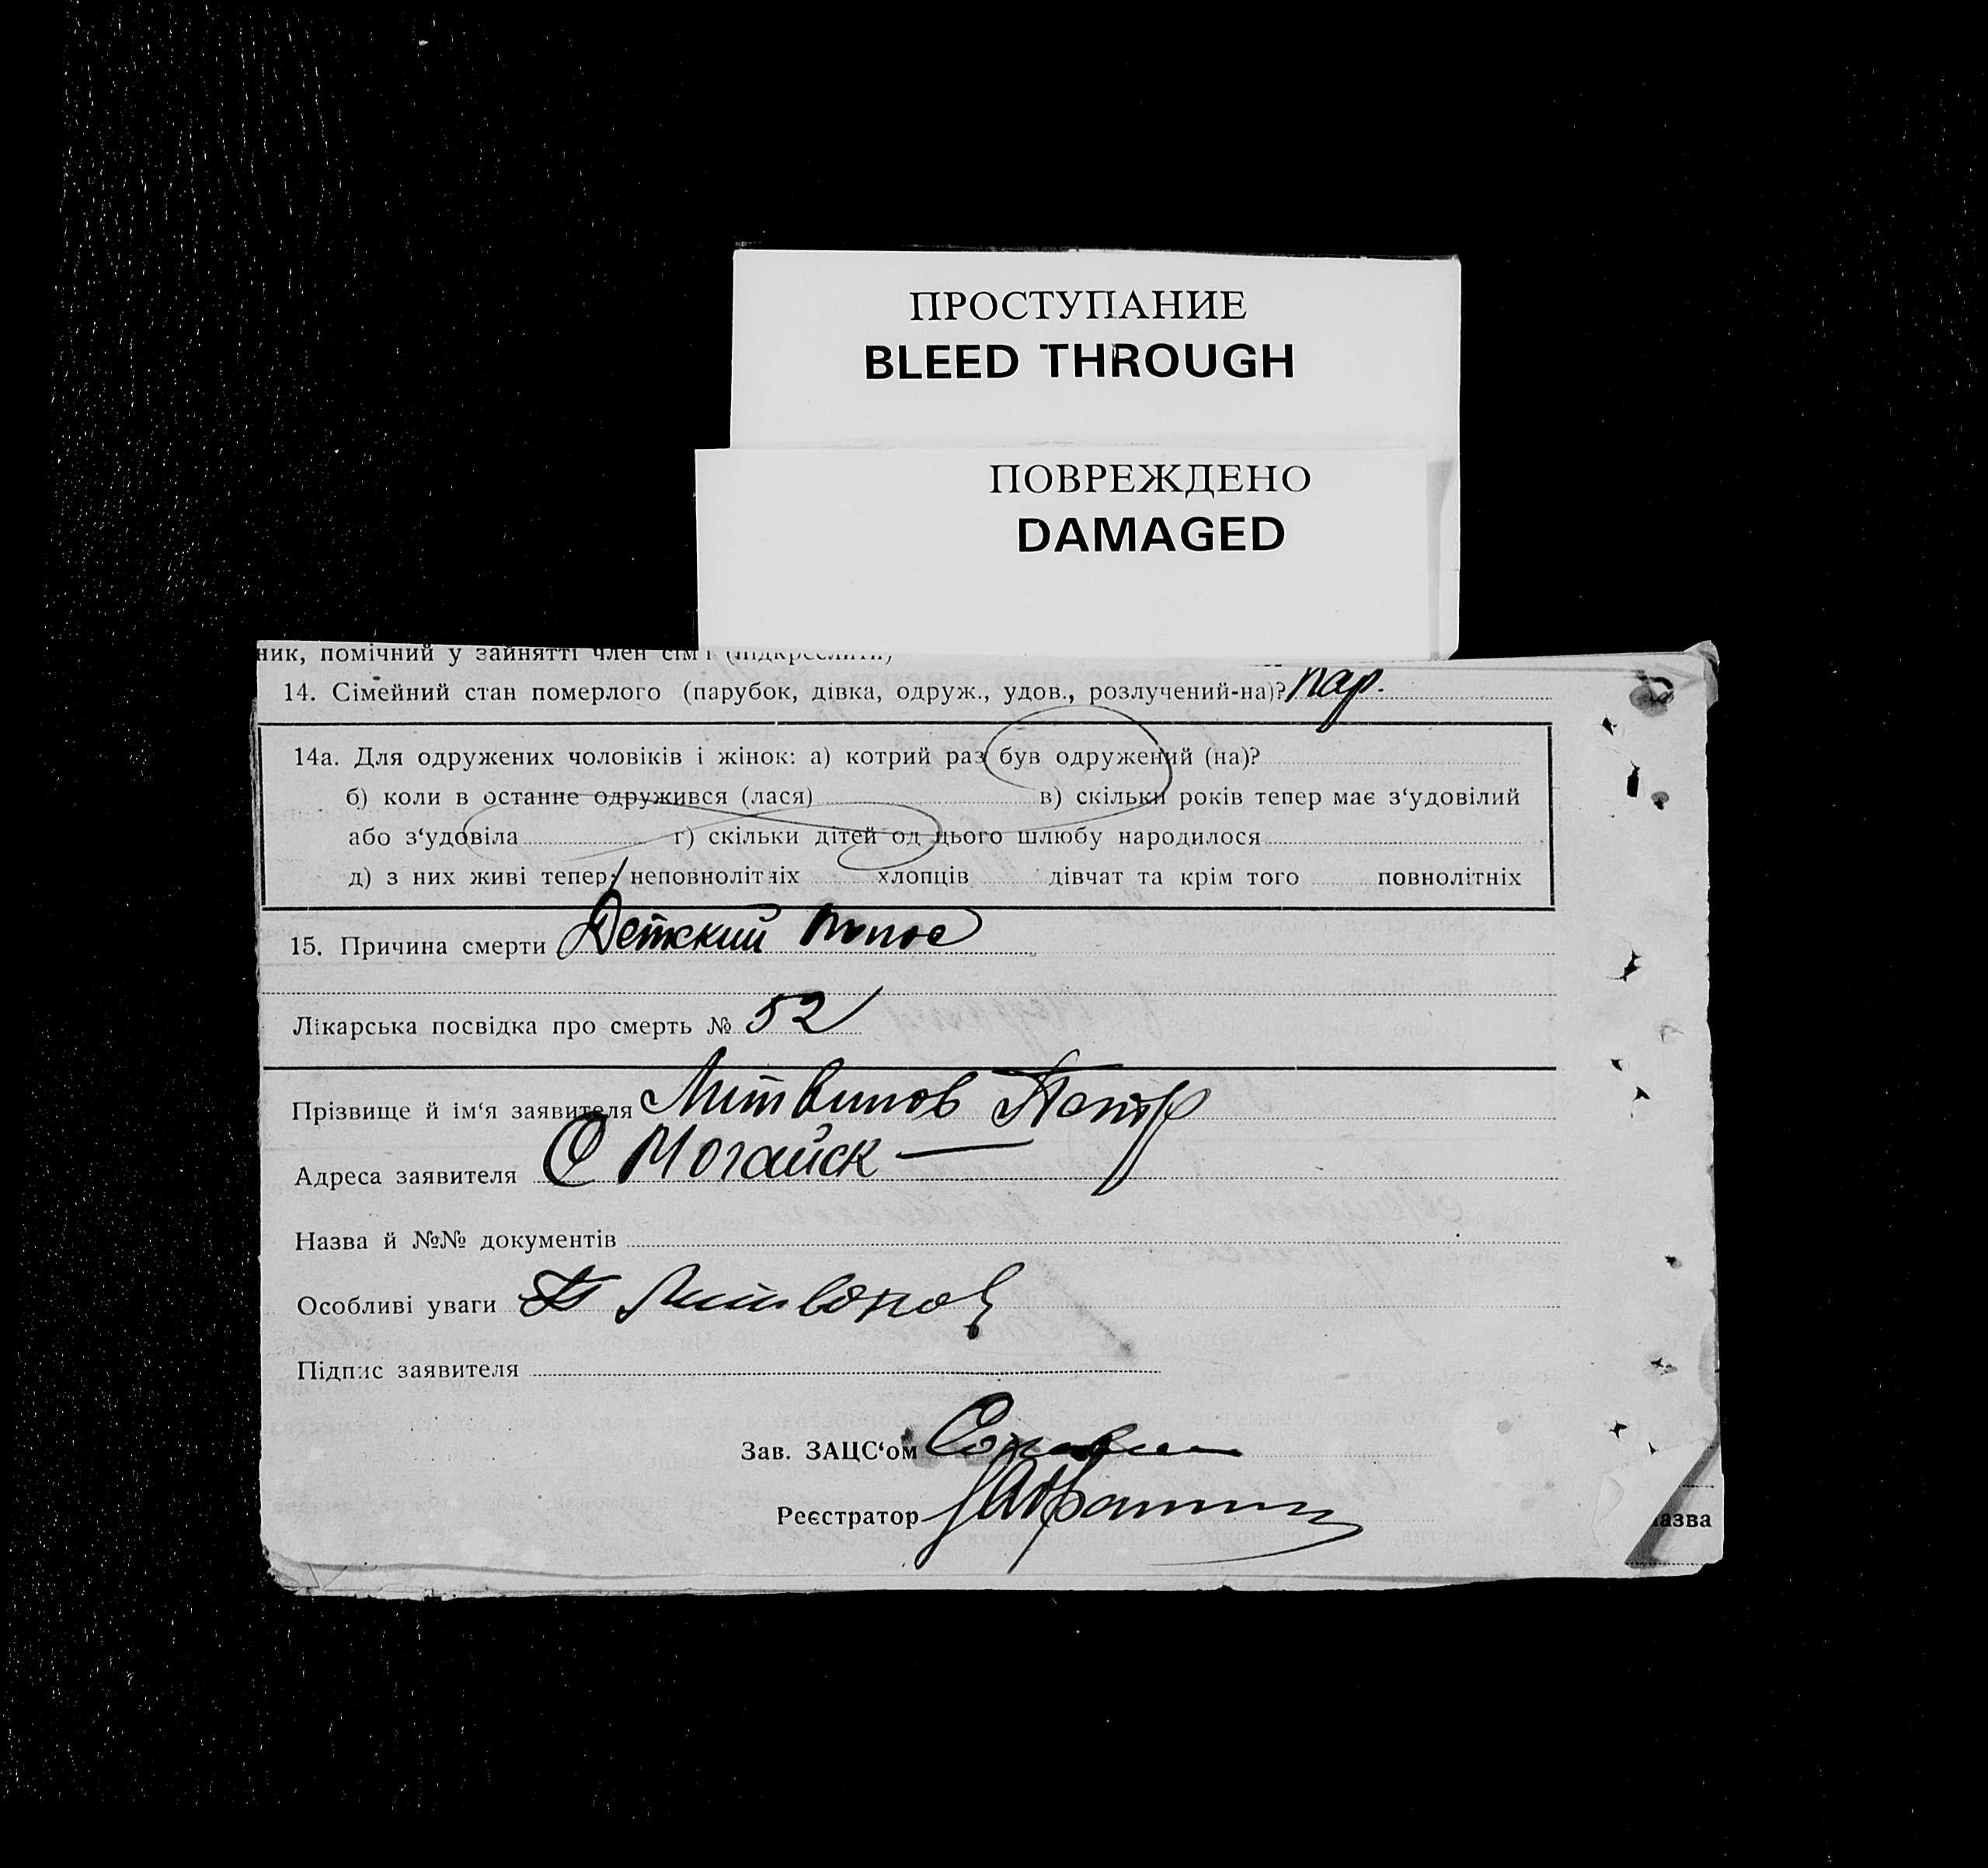 ПРОСТУПАНИЕ
BLEED THROUGH
ПОВРЕЖДЕНО
DAMAGED
ник, помічний у зайнятті член сім'ї (підкреслити)
14. Сімейний стан померлого (парубок, дівка, одруж., удов., розлучений-на)? пар.
14а. Для одружених чоловіків і жінок: а) котрий раз був одружений (на)?
б) коли в останне одружився (лася) в) скільки років тепер має з‘удовілий
або з‘удовіла г) скільки дітей од цього шлюбу народилося
д) з них живі тепер: неповнолітніх хлопців дівчат та крім того повнолітніх
15. Причина смерти Детский понос
Лікарська посвідка про смерть № 52
Прізвище й ім‘я заявителя Литвинов Петр
Адреса заявителя С Ногайск
Назва й №№ документів
Особливі уваги П Литвинов
Підпис заявителя
Зав. ЗАЦС‘ом
Реєстратор
азва